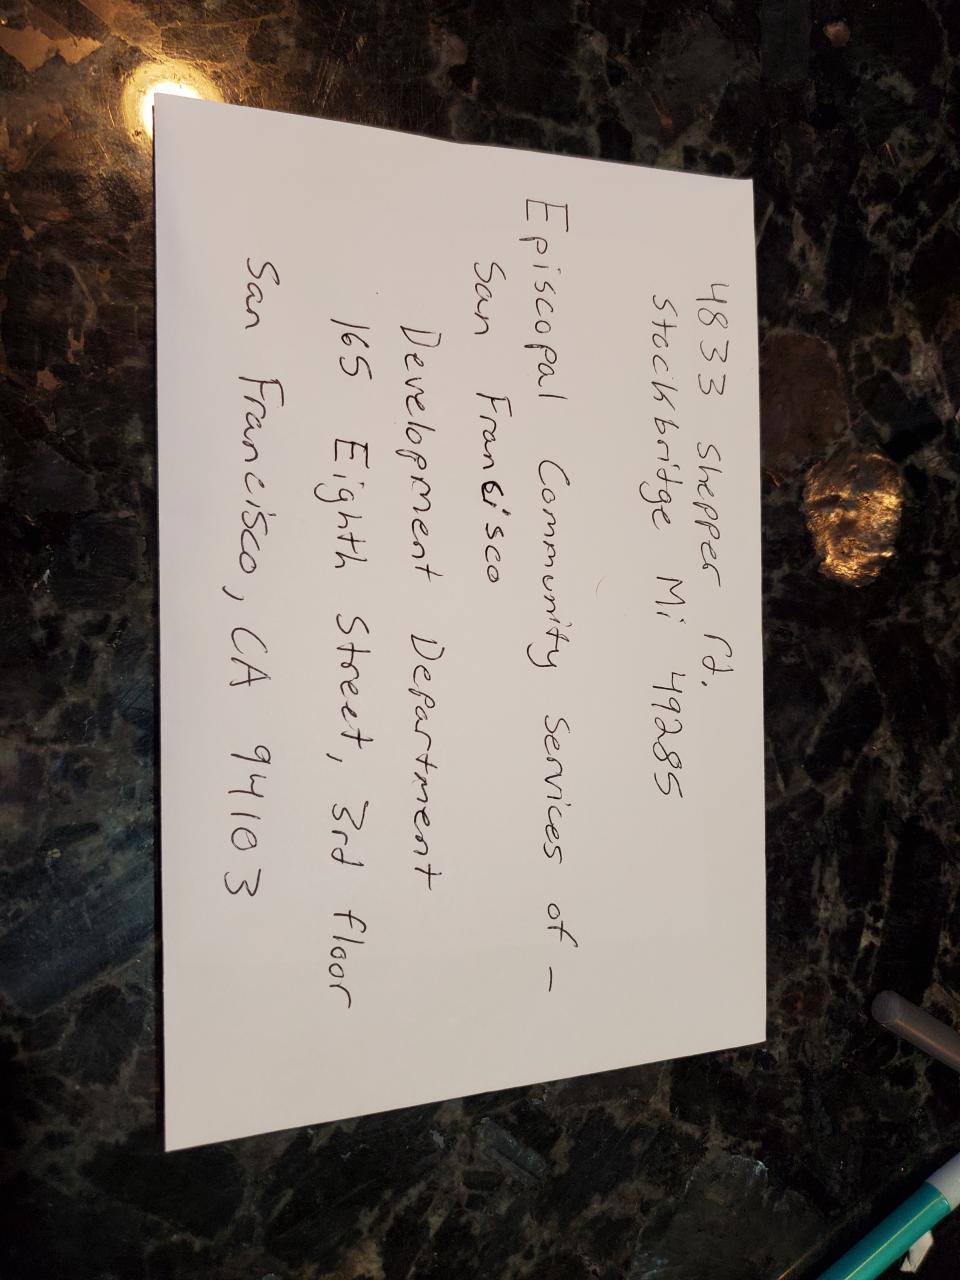 4833 Shepper rd.
Stockbridge Mi 49285
Episcopal Community Services of -
San Francisco
Development Department
165 Eighth Street, 3rd floor
San Francisco, CA 94103